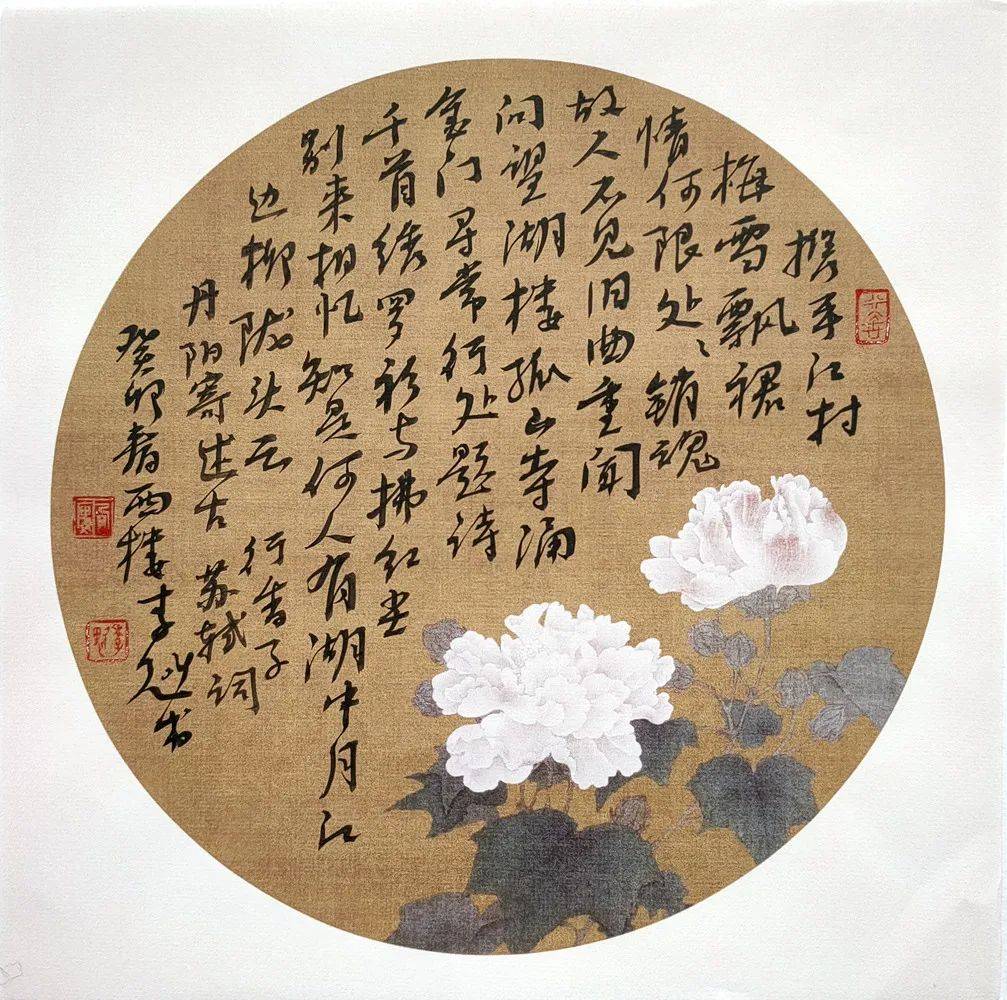 携手江村
梅雪飘裙
情何限处〻销魂
故人不见旧曲重闻
向望湖楼孤山寺涌
金门寻常行处题诗
千首绣罗衫与拂红尘
别来相忆知是何人有湖中月江
边柳陇头云 行香子
丹阳寄述古 苏轼词
癸卯春西楼李书